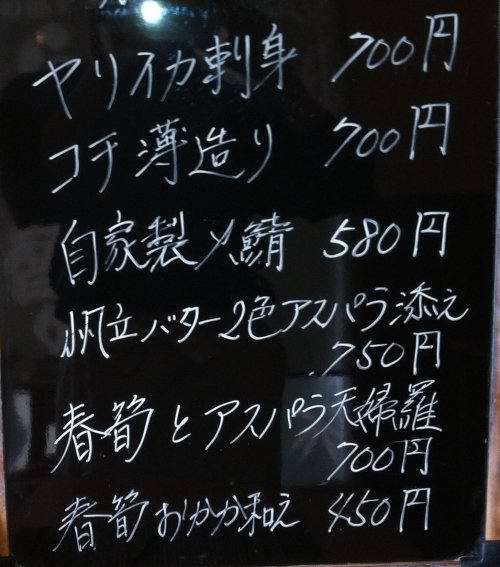 ヤリイカ刺身 700円
コチ薄造り 700円
自家製〆鯖 580円
帆立バター2色アスパラ添え
750円
春筍とアスパラ天婦羅
700円
春筍おかか和え 450円